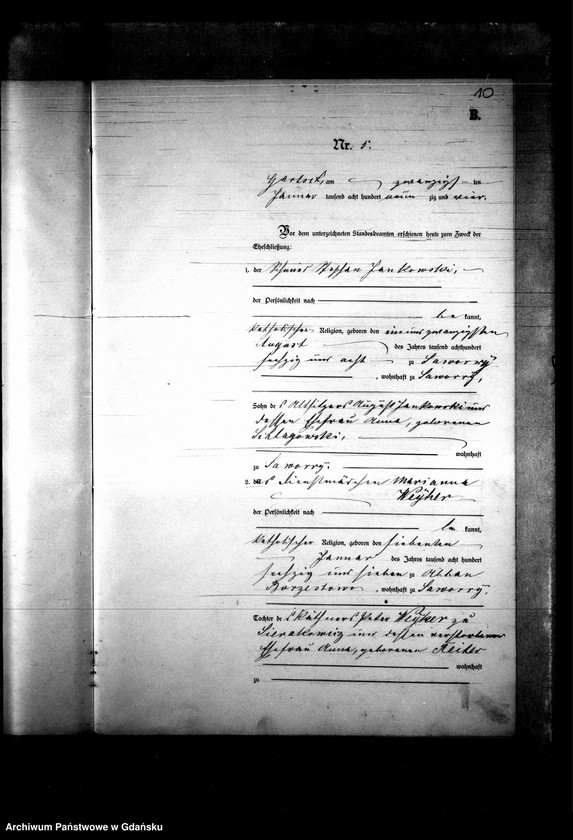 10
B.
Nr. 5.
am zwanzigsten
Januar tausend acht hundert neun zig und vier.
Vor dem unterzeichneten Standesbeamten erschienen heute zum Zweck der
Eheschließung:
1. der Stephan Jankowski,
der Persönlichkeit nach
be kannt,
katholischer Religion, geboren den einundzwanzigsten
August des Jahres tausend achthundert
sechzig und acht zu Saworry
, wohnhaft zu Saworry,
Sohn des Altsitzers August Jankowski und
dessen Ehefrau Anna, geborenen
wohnhaft
zu Saworry.
2. das Dienstmädchen Marianna
Weyher
der Persönlichkeit nach
be kannt,
katholischer Religion, geboren den siebenten
Januar des Jahres tausend acht hundert
sechzig und sieben zu Abbau
Borzestowo, wohnhaft zu Saworry,
Tochter des Käthners Peter Weyher zu
Sierakowitz und dessen verstorbenen
Ehefrau Anna, geborenen Reiter
wohnhaft
zu
Archiwum Państwowe w Gdańsku